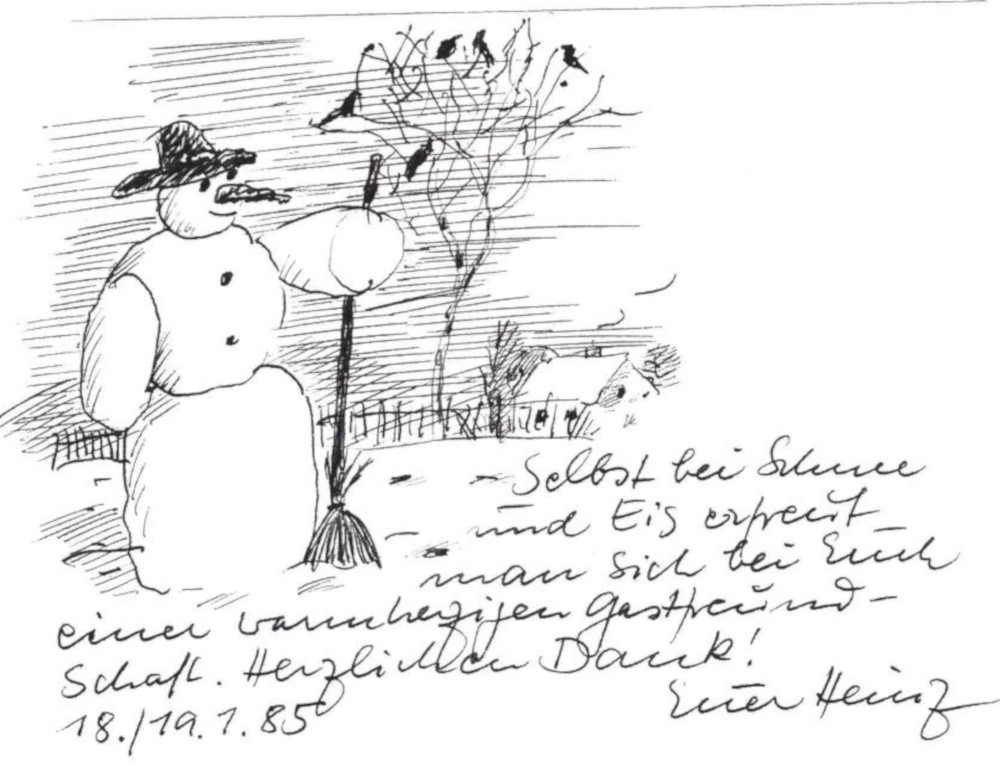 Selbst bei Schnee
und Eis erfreut
man sich bei Euch
einer warmherzigen Gastfreund-
schaft. Herzlichen Dank!
18./19.1.85
Euer Heinz